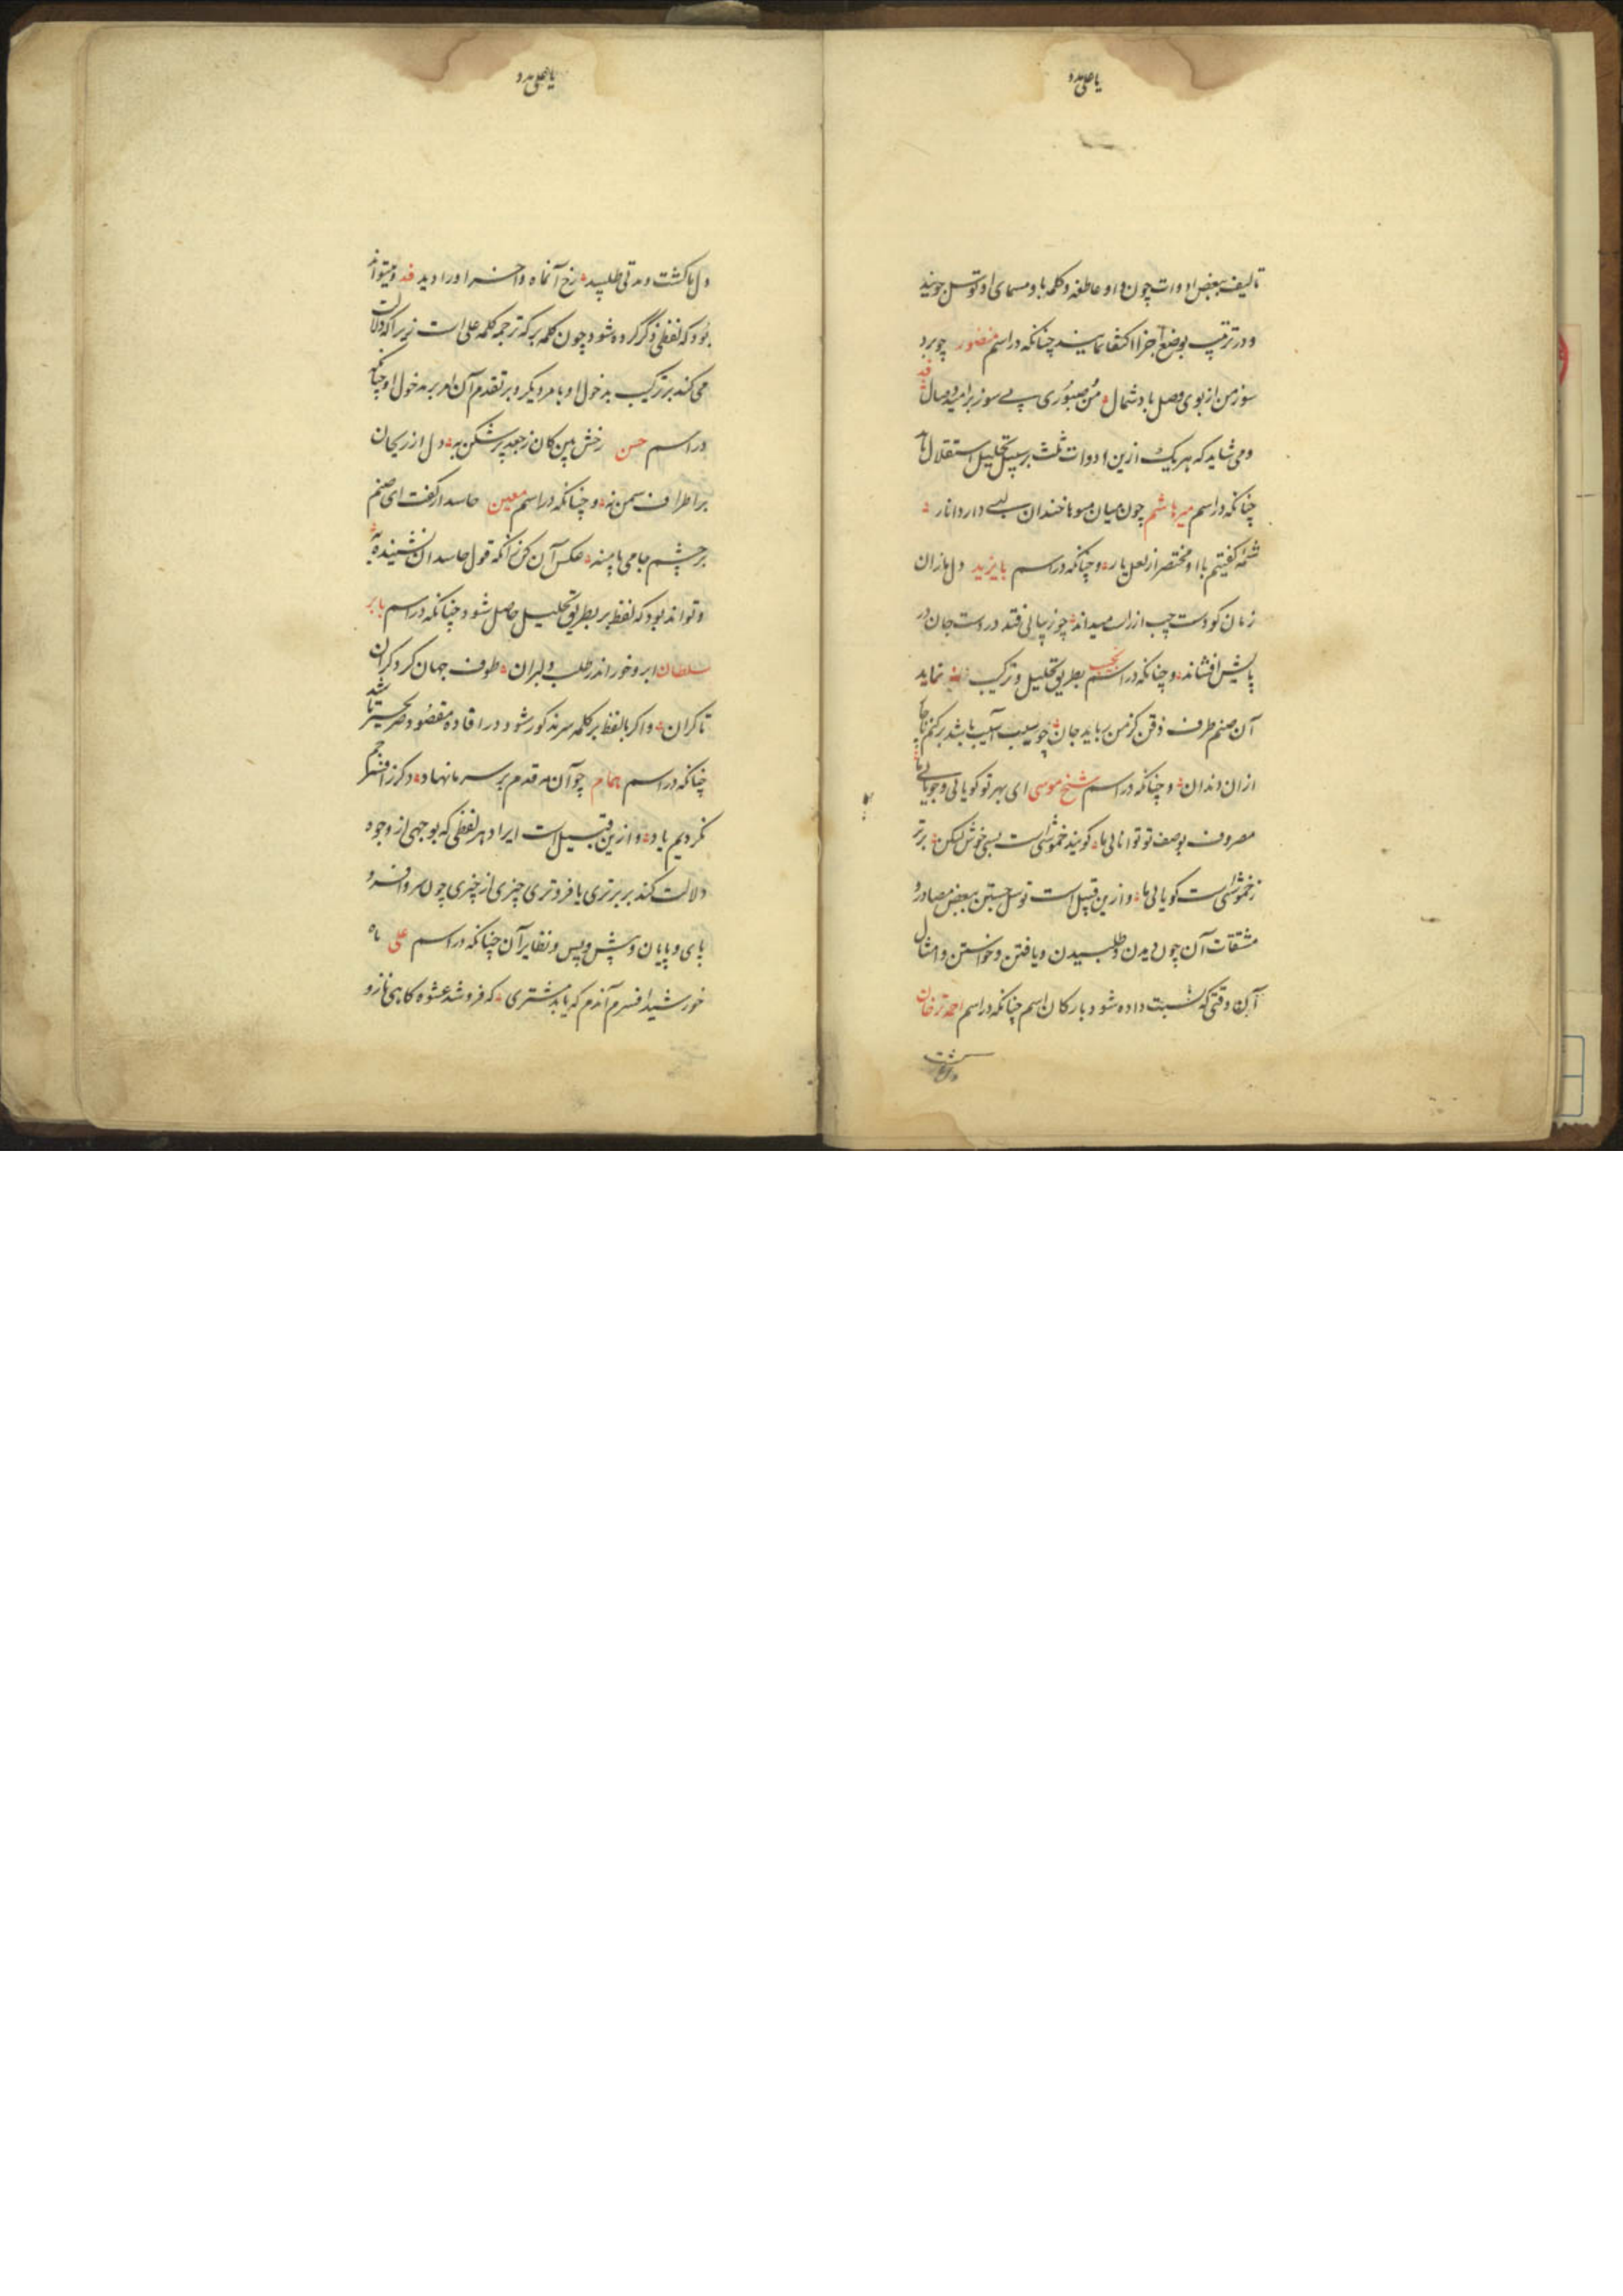 یا علی مدد
تالیف ببعض ادوات چون واو عاطفه و کلمه با و مسمای او توسل جویند
و در ترتیب بوضع اجزا اکتفا نمایند چنانکه در اسم منصور چو برد
سوز من از بوی وصل باد شمال من صبوری بی سوز بر امید وصال
و می شاید که هر یک ازین ادوات ثلث بر سبیل تحلیل استقلال
چنانکه در اسم میر هاشم چون میان میوها خندان لبی دارد انار
شمه گفتیم با او مختصر از لعل یار و چنانکه در اسم بایزید دل بازان
زمان کو دست چپ از راست میداند چو زیبائی فتد در دست جان در
پایش افشاند و چنانکه در اسم نجیب بطریق تحلیل و ترکیب نماید
آن صنم طرف ذقن کز من رباید جان چو سیب آسیب باشد بر کنم
ازان دندان و چنانکه در اسم شیخ موسی ای بهر تو گویائی و جویائی ما
مصروف بوصف تو توانائی ما گویند خموشی است بسی خوش لیکن برتر
ز خموشیست گویائی ما و ازین قبیل است توسل جستن ببعض مصادر و
مشتقات آن چون دیدن و طلبیدن و یافتن و خواستن و امثال
آن وقتی که نسبت داده شود بارکان اسم چنانکه در اسم احمد ترخان
یا علی مدد
دل ما گشت و مدتی طلبید رخ آنماه و آخر او را دید و میتواند
بود که لفظی ذکر کرده شود چون کلمه بر که ترجمه کلمه علی است زیرا که دلالت
می کند بر ترکیب مدخول او با امر دیگر و بر تقدم آن امر بر مدخول او چنانکه
در اسم حسن رخش بین کان ز جعد پر شکن به دل از ریحان
بر اطراف سمن نه و چنانکه در اسم معین حاسد ار گفت ای صنم
بر چشم جامی پا منه عکس آن کن زانکه قول حاسدان نشنیده به
و تواند بود که لفظ بر بطریق تحلیل حاصل شود چنانکه در اسم بابر
سلطان ابر و خور اندر طلب دلبران طوف جهان کرد کران
تا کران و اگر با لفظ بر کلمه سر مذکور شود در افاده مقصود صریحتر باشد
چنانکه در اسم همام چو آن مه قدم بر سر ما نهاد دگر ز افسر جم
نکردیم یاد و ازین قبیل است ایراد هر لفظی که بوجهی از وجوه
دلالت کند بر برتری یا فروتری چیزی از چیزی چون سر و افسر و
پای و پایان و پیش و پس و نظایر آن چنانکه در اسم علی ماه
خورشید افسرم آندم که یابد مشتری که فروشد عشوه گاهی ناز و